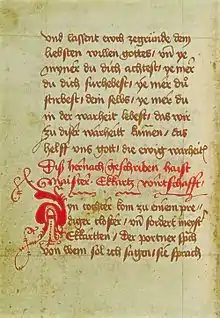 und lassent ewch zegrunde dem
liebsten willen gottes / vn̄ ye
mynner du dich achtest / ye mer
du dich furhebest / ye mer du
stirbest / dem selbs / ye mer du
in der warheit lebest / das wir
zu diser warheitt kumen / das
helff uns gott / die ewig warheit
Dis hernach geschriben haist
Maister Ekkartz wurtschafft
Ayn tochter kom zu einem pre
diger closter / vn̄ fordert meyst
Ekkartten / Der portner sp̄ch
von wem sol ich sagen / sie sprach